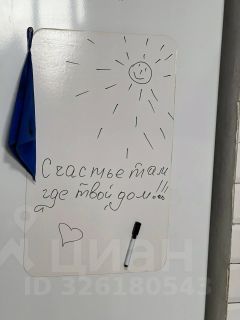 Счастье там
где твой дом...!!!
циан
ID 326180543